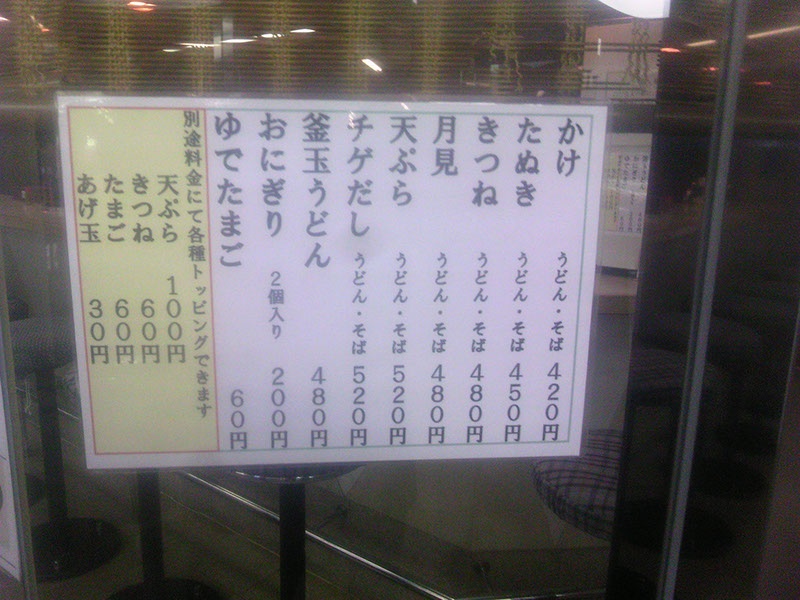 かけ うどん・そば 420円
たぬき うどん・そば 450円
きつね うどん・そば 480円
月見 うどん・そば 480円
天ぷら うどん・そば 520円
チゲだし うどん・そば 520円
釜玉うどん 480円
おにぎり 2個入り 200円
ゆでたまご 60円
別途料金にて各種トッピングできます
天ぷら 100円
きつね 60円
たまご 60円
あげ玉 30円